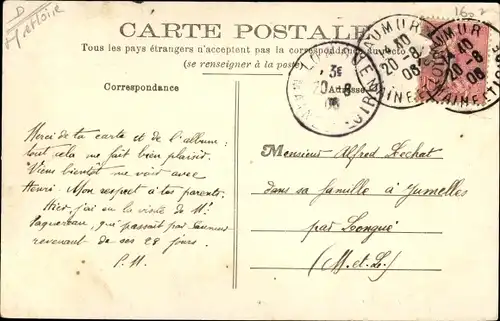 D
1602
CARTE POSTALE
Tous les pays étrangers n'acceptent pas la correspondance au recto
(se renseigner à la poste)
SAUMUR
4 40
20-8
06
MAINE-ET-LOIRE
SAUMUR
4 40
20-8
06
LONGUÉ
3E
20-8
06
MAINE-ET-LOIRE
Correspondance
Adresse
Merci de ta carte et de l'album:
tout cela me fait bien plaisir.
Viens bientôt me voir avec
Henri. Mon respect à tes parents.
Hier j'ai eu la visite de Mr
Paquereau, qui passait par Saumur
revenant de ses 28 jours.
P. H.
Monsieur Alfred Lechat
dans sa famille à Jumelles
par Longué
(M.-et-L.)